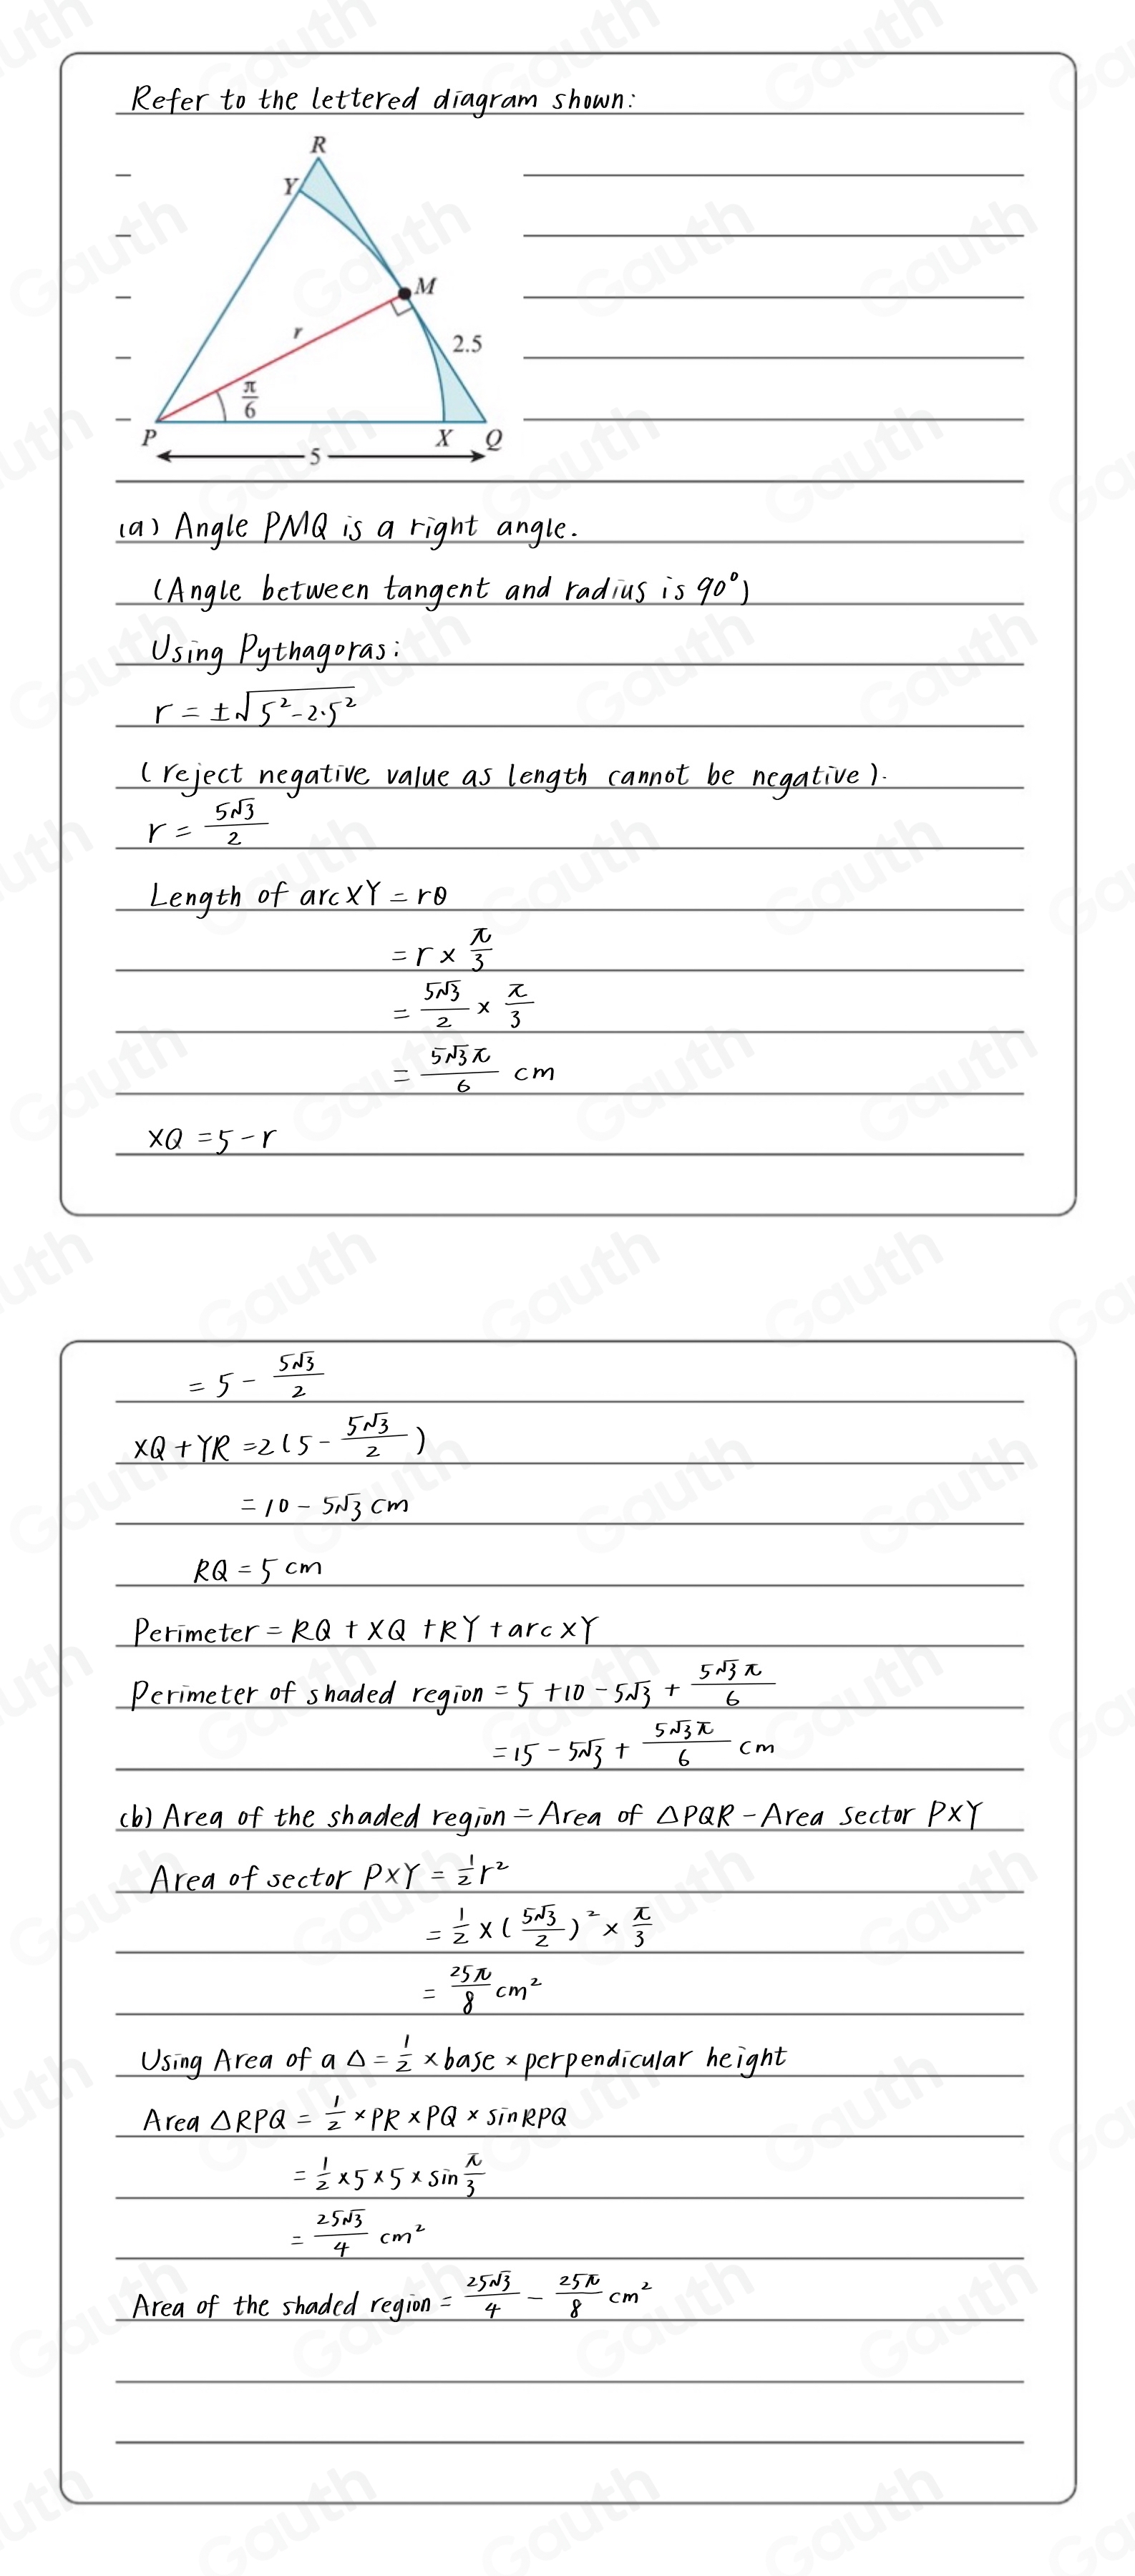 Refer to the lettered diagram shown:
R
Y
M
r
2.5
π/6
P
X
Q
5
(a) Angle PMQ is a right angle.
(Angle between tangent and radius is 90°)
Using Pythagoras:
r = ±√(5² - 2.5²)
(reject negative value as length cannot be negative).
r = 5√3/2
Length of arc XY = rθ
= r × π/3
= 5√3/2 × π/3
= 5√3π/6 cm
XQ = 5 - r
= 5 - 5√3/2
XQ + YR = 2(5 - 5√3/2)
= 10 - 5√3 cm
RQ = 5 cm
Perimeter = RQ + XQ + RY + arc XY
Perimeter of shaded region = 5 + 10 - 5√3 + 5√3π/6
= 15 - 5√3 + 5√3π/6 cm
(b) Area of the shaded region = Area of △PQR - Area sector PXY
Area of sector PXY = 1/2 r²
= 1/2 × (5√3/2)² × π/3
= 25π/8 cm²
Using Area of a △ = 1/2 × base × perpendicular height
Area △RPQ = 1/2 × PR × PQ × sin RPQ
= 1/2 × 5 × 5 × sin π/3
= 25√3/4 cm²
Area of the shaded region = 25√3/4 - 25π/8 cm²
Gauth